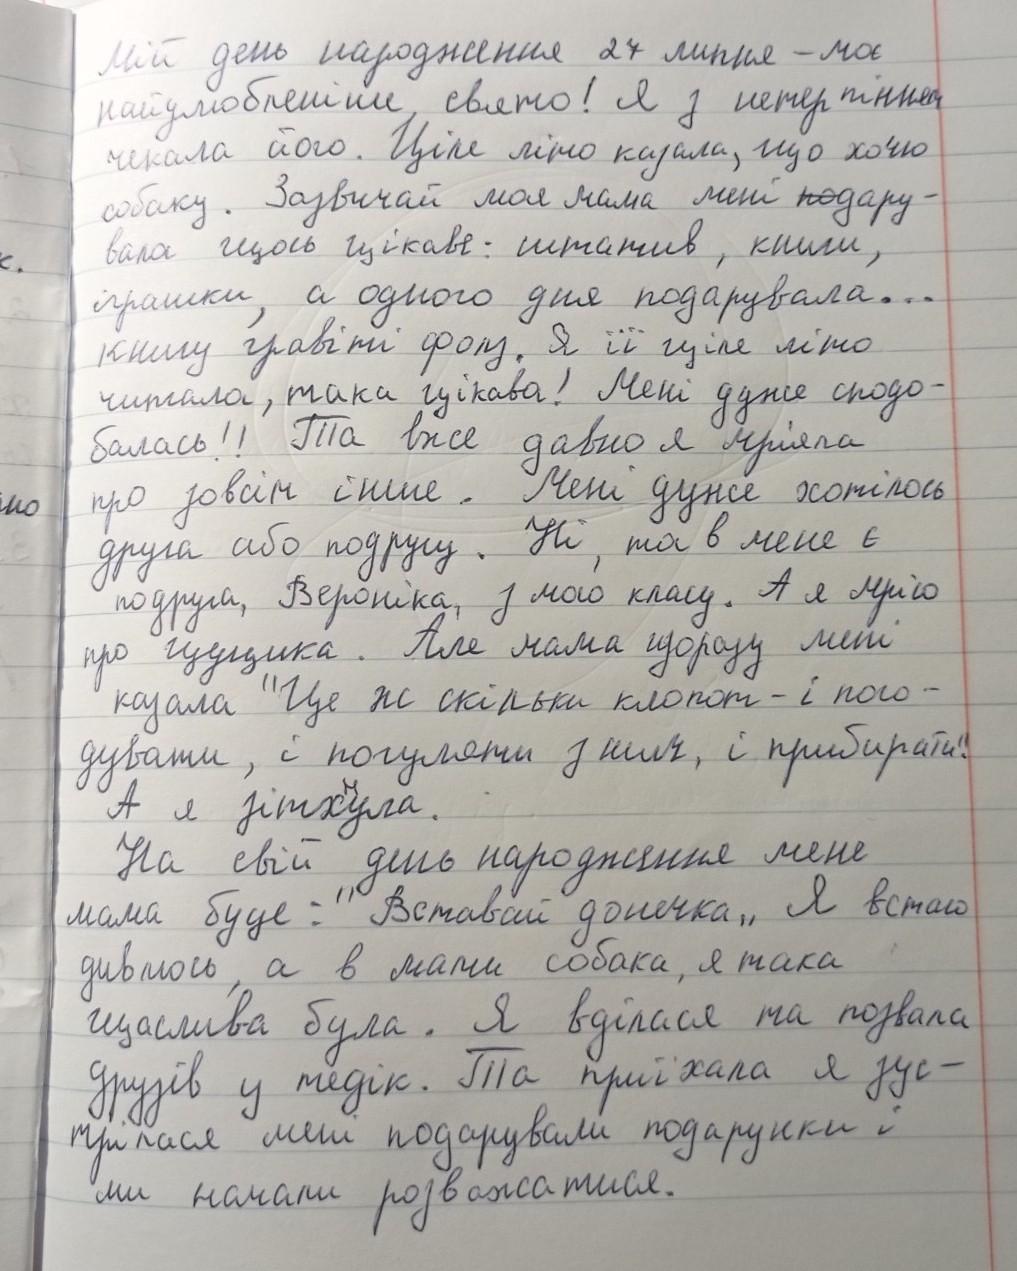 Мій день народження 27 липня – моє
найулюбленіше свято! Я з нетерпінням
чекала його. Ціле літо казала, що хочю
собаку. Зазвичай моя мама мені подару-
вала щось цікаве: штатив, книги,
іграшки, а одного дня подарувала...
книгу гравіті фолз. Я її ціле літо
читала, така цікава! Мені дуже сподо-
балась!! Та вже давно я мріяла
про зовсім інше. Мені дуже хотілось
друга або подругу. Ні, та в мене є
подруга, Вероніка, з мого класу. А я мрію
про цуцика. Але мама щоразу мені
казала "Це ж скільки клопот – і пого-
дувати, і погуляти з ним, і прибирати"!
А я зітхнула.
На свій день народження мене
мама буде: "Вставай донечка„ Я встаю
дивлюсь, а в мами собака, я така
щаслива була. Я вділася та позвала
друзів у тедік. Та приїхала я зус-
трілася мені подарували подарунки і
ми начали розважатися.